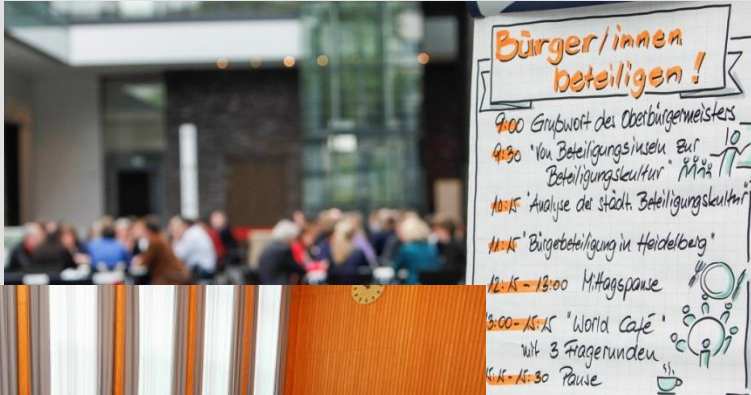 Bürger/innen
beteiligen!
9:00 Grußwort des Oberbürgermeisters
9:30 "Von Beteiligungsinseln zur
Beteiligungskultur"
10:15 "Analyse der städt. Beteiligungskultur"
11:15 "Bürgebeteiligung in Heidelberg"
12:15 - 13:00 Mittagspause
3:00 - 15:15 "World Café"
mit 3 Fragerunden
15:15 - 15:30 Pause